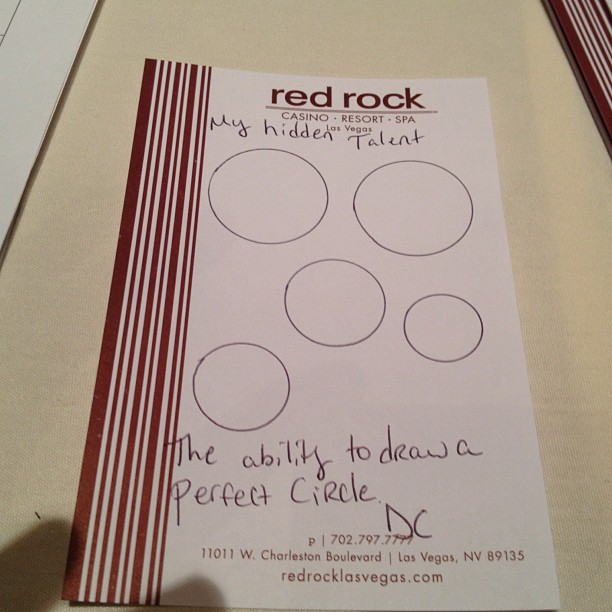 red rock
CASINO · RESORT · SPA
Las Vegas
My hidden Talent
The ability to draw a
perfect Circle.
DC
P | 702.797.7777
11011 W. Charleston Boulevard | Las Vegas, NV 89135
redrocklasvegas.com